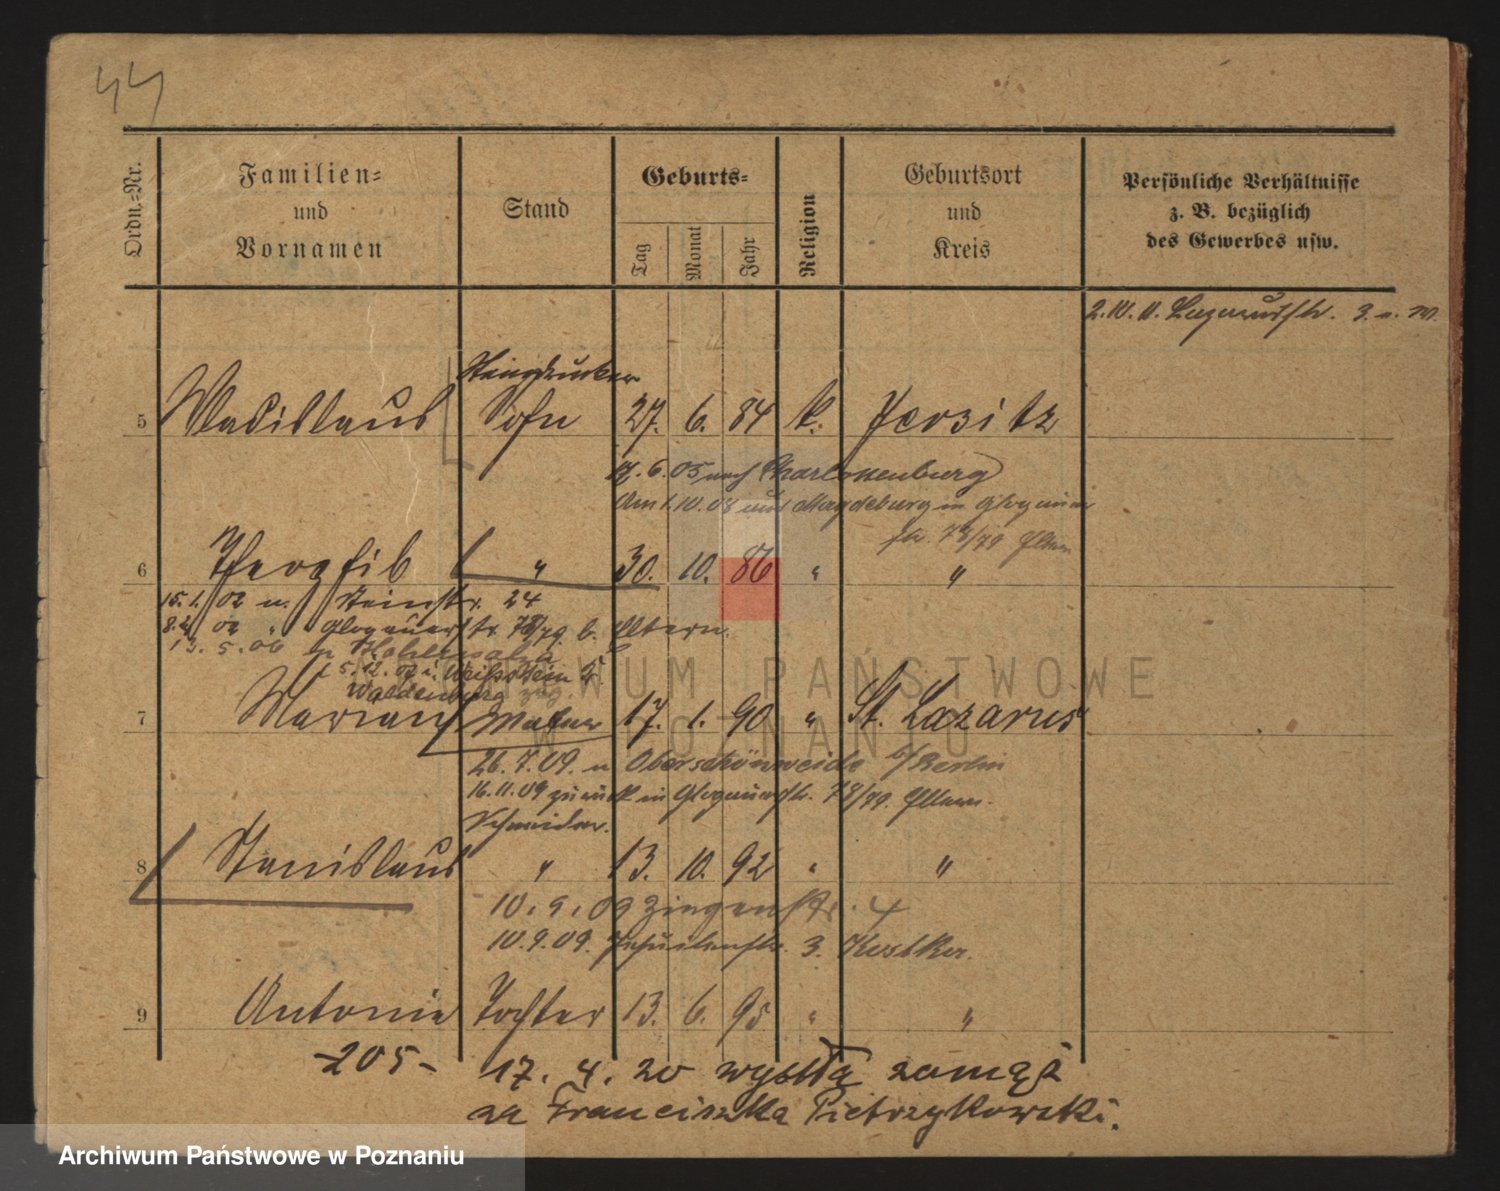 44
Ordn.-Nr.
Familien-
und
Vornamen
Stand
Geburts-
Tag
Monat
Jahr
Religion
Geburtsort
und
Kreis
Persönliche Verhältnisse
z. B. bezüglich
des Gewerbes usw.
2.10.11. Lazarusstr. 3.
Steindrucker
5 Wladislaus Sohn 27. 6. 84 k. Jersitz
17.6.05 nach Charlottenburg
Am 1.10.08 aus Magdeburg in Glogauer
str. 78/79 Eltern
6 " 30. 10. 86 " "
15.1.02 n. Steinstr. 24
8.2.02 " Glogauerstr. 78/79 b. Eltern.
13.5.06 Hohensalza
5.12.07 i. Weißstein Kr.
Waldenburg zug.
7 Marian Maler 17. 1. 90 " St. Lazarus
26.7.09. n Oberschönweide b/Berlin
16.11.09 zurück in Glogauerstr. 78/79. Eltern.
Schneider.
8 Stanislaus " 13. 10. 92 " "
10.9.09 Ziegenstr. 4
10.9.09. Jesuitenstr. 3.
9 Antonie Tochter 13. 6. 95 " "
-205- 17. 4. 20 wyszła zamąż
za Franciszka Pietrzykowski.
ARCHIWUM PAŃSTWOWE
W POZNANIU
Archiwum Państwowe w Poznaniu